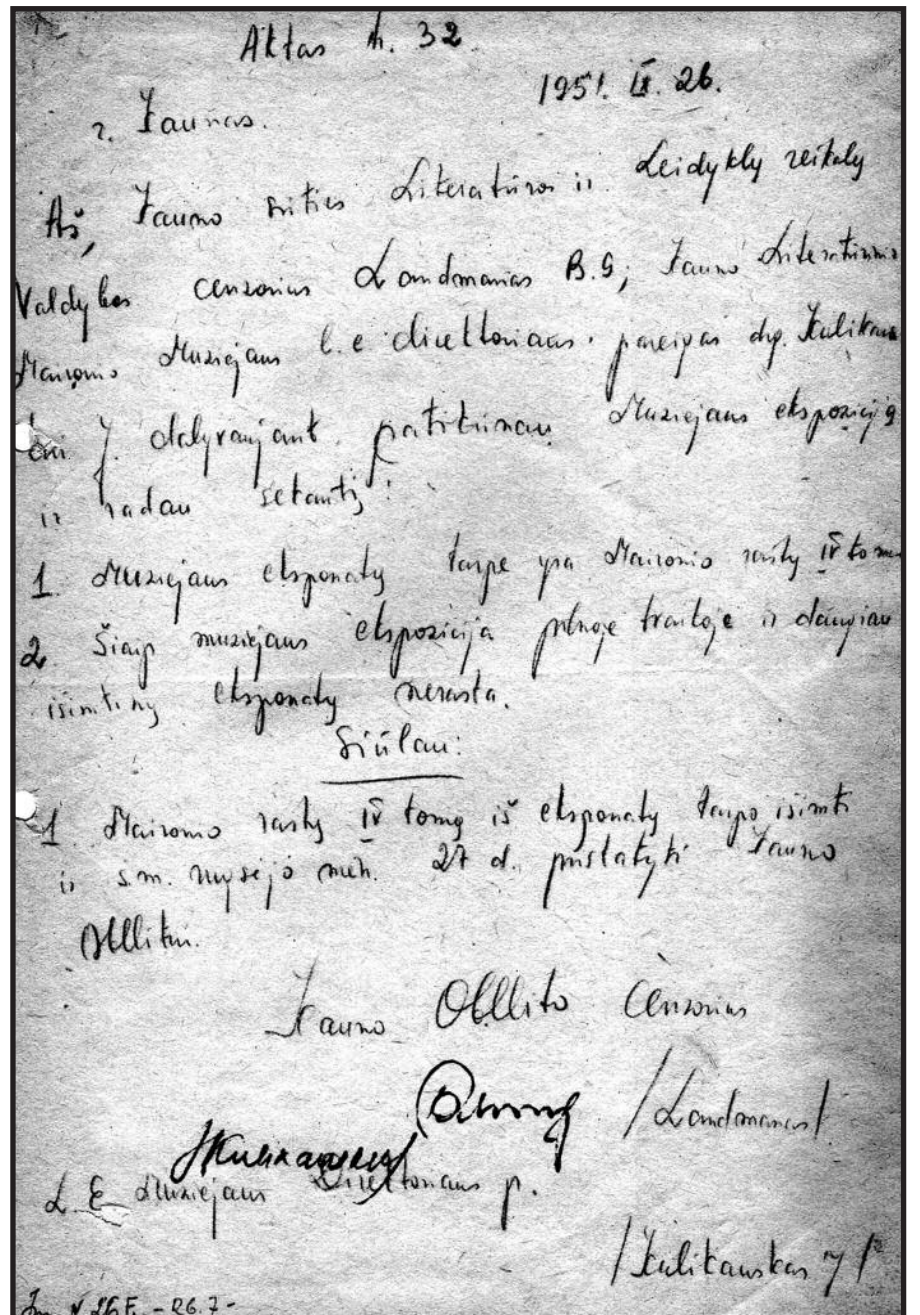 Aktas N. 32
1951. IX. 26.
г. Kaunas.
Aš, Kauno srities Literatūros ir Leidyklų reikalų
Valdybos cenzorius Landmanas B. G., Kauno Literatūrinio
Maironio Muziejaus l. e direktoriaus pareigas drg. Kulikaus
kui J. dalyvaujant patikrinau Muziejaus ekspoziciją
ir radau sekantį:
1. Muziejaus eksponatų tarpe yra Maironio raštų IV tomas
2. Šiaip muziejaus ekspozicija pilnoje tvarkoje ir daugiau
išimtinų eksponatų nerasta.
Siūlau:
1. Maironio raštų IV tomą iš eksponatų tarpo išimti
ir s.m. rugsėjo mėn. 27 d. pristatyti Kauno
Obllitui.
Kauno Obllito Cenzorius
/Landmanas/
JKulikauskas
L. E Muziejaus Direktoriaus p.
/Kulikauskas J/